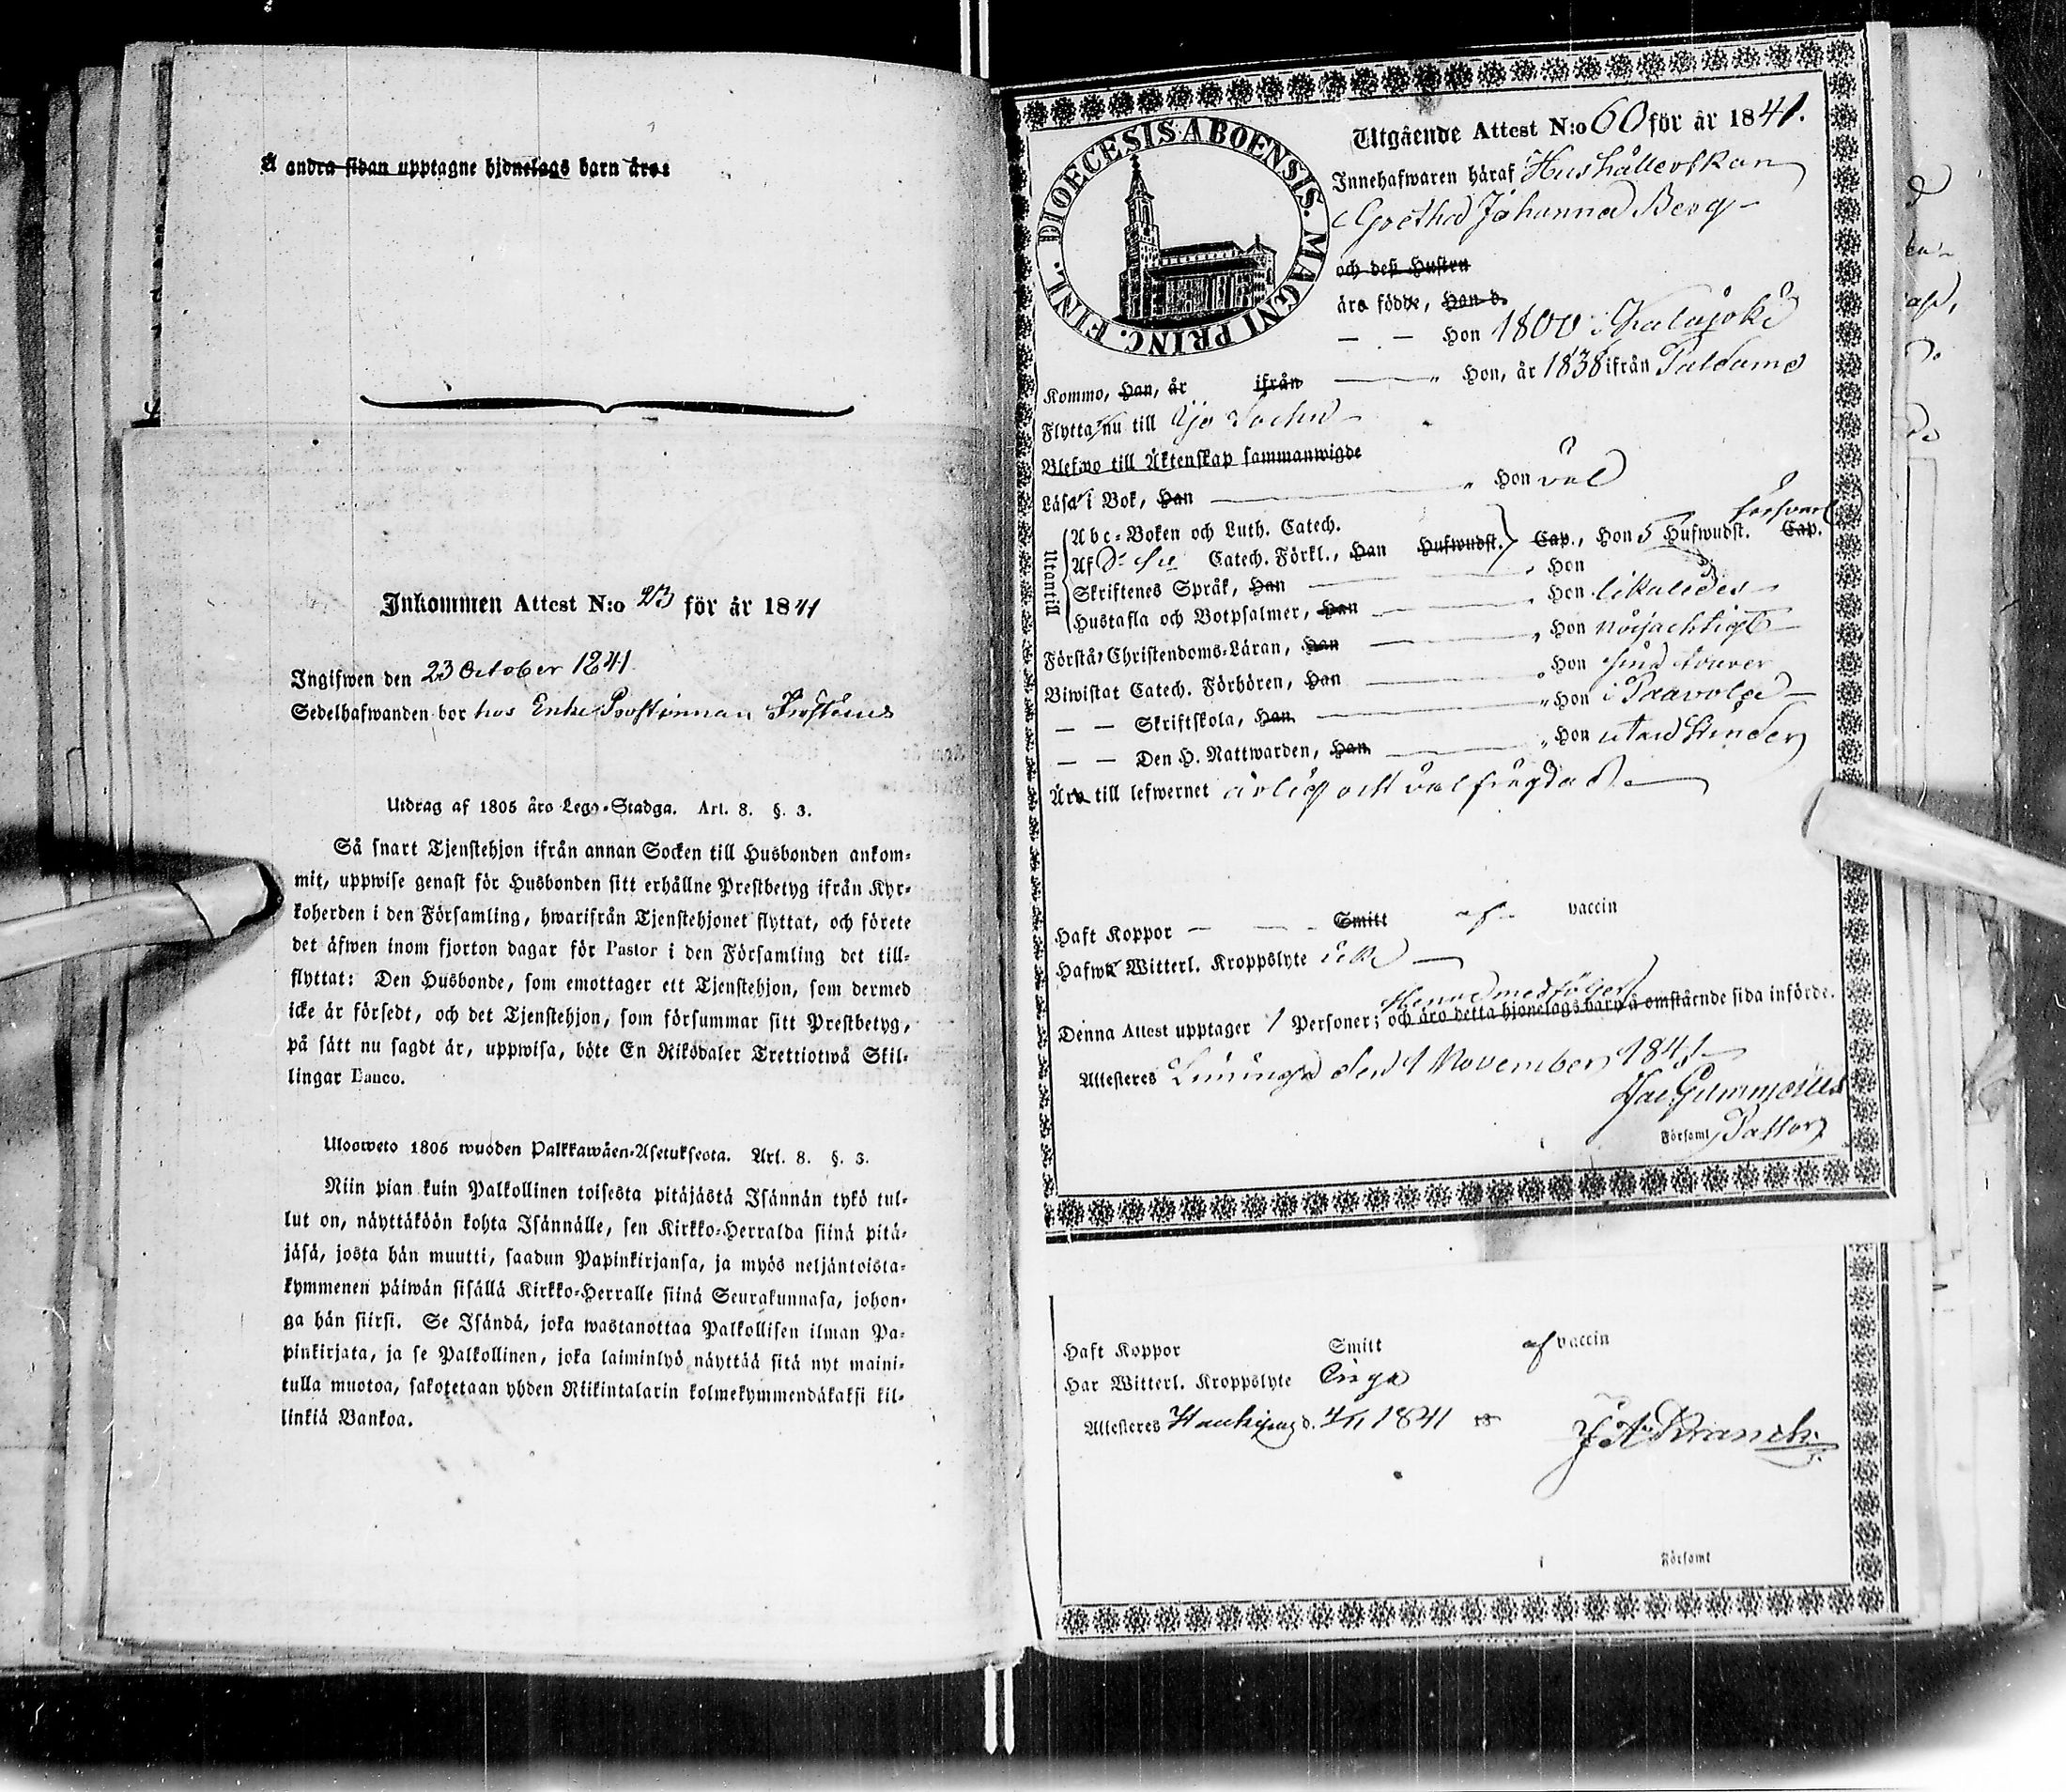 Å andra sidan upptagne hjonelags barn äro:
Inkommen Attest N:o 23 för år 1841
Ingifwen den 23 October 1841
Sedelhafwanden bor hos Enke Prostinnan
Utdrag af 1805 års Lego-Stadga. Art. 8. §. 3.
Så snart Tjenstehjon ifrån annan Socken till Husbonden ankom-
mit, uppwise genast för Husbonden sitt erhållne Prestbetyg ifrån Kyr-
koherden i den Församling, hwarifrån Tjenstehjonet flyttat, och förete
det äfwen inom fjorton dagar för Pastor i den Församling det till-
flyttat: Den Husbonde, som emottager ett Tjenstehjon, som dermed
icke är försedt, och det Tjenstehjon, som försummar sitt Prestbetyg,
på sätt nu sagdt är, uppwisa, böte En Riksdaler Trettiotwå Skil-
lingar Banco.
Uloosweto 1805 wuoden Palkkawäen-Asetuksesta. Art. 8. §. 3.
Niin pian kuin Palkollinen toisesta pitäjästä Isännän tykö tul-
lut on, näyttäköön kohta Isännälle, sen Kirkko-Herralda siinä pitä-
jäsä, josta hän muutti, saadun Papinkirjansa, ja myös neljäntoista-
kymmenen päiwän sisällä Kirkko-Herralle siinä Seurakunnasa, johon-
ga hän siirsi. Se Isändä, joka wastanottaa Palkollisen ilman Pa-
pinkirjata, ja se Palkollinen, joka laiminlyö näyttää sitä nyt maini-
tulla muotoa, sakotetaan yhden Riikintalarin kolmekymmendäkaksi kil-
linkiä Bankoa.
DIOECESIS ABOENSIS. MAGNI PRINC. FINL.
Utgående Attest N:o 60 för år 1841.
Innehafwaren häraf Hushållerskan
Gretha Johanna Berg
och dess Hustru
äro födde, Han d.
— — Hon 1800 i Kalajoki
Kommo, Han, år ifrån — " Hon, år 1838 ifrån Paldamo
Flytta nu till Ijo Sochn
Blefwo till Äktenskap sammanwigde
Läsa i Bok, Han — " Hon väl
Utantill
Abc-Boken och Luth. Catech. försvarl
Af Catech. Förkl., Han Hufwudst. Cap., Hon 5 Hufwudst. Cap.
Skriftenes Språk, Han — " Hon
Hustafla och Botpsalmer, Han — " Hon likaledes
Förstå Christendoms-Läran, Han — " Hon nöjachtigt
Biwistat Catech. Förhören, Han — " Hon sina
— — Skriftskola, Han — " Hon i Paavola
— — Den H. Nattwarden, Han — " Hon utan hinder
Äro till lefwernet ärlig och välfrägdad
Haft Koppor — — Smitt af vaccin
Hafwa Witterl. Kroppslyte icke
Henne medföljer
Denna Attest upptager 1 Personer; och äro detta hjonelags barn å omstående sida införde.
Attesteres Limingo den 1 November 1841
Jac. Gummerus
Församl. Pastor
Haft Koppor Smitt af vaccin
Har Witterl. Kroppslyte Inga
Attesteres Haukipudas d. 4/11 1841
Församl